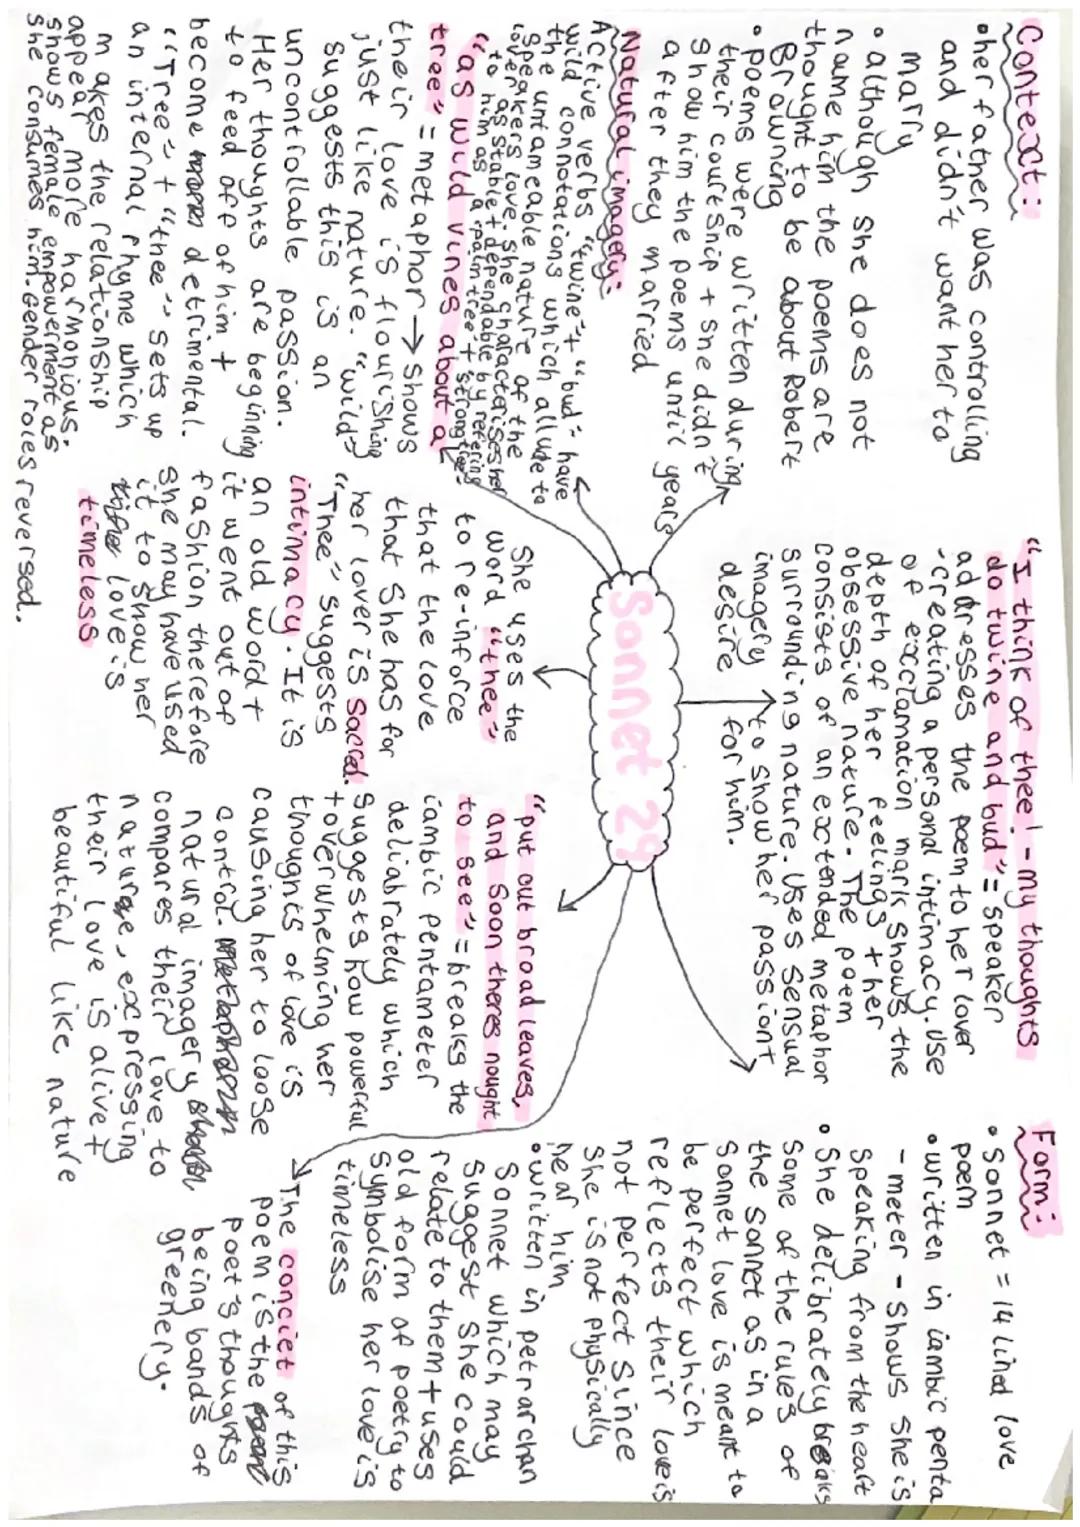 Context:
• her father was controlling
and didn't want her to
marry
• although she does not
name him the poems are
thought to be about Robert
Browning
• poems were written during
their courtship + she didn't
show him the poems until years
after they married
Natural imagery:
Active verbs "twine" + "bud" have
wild connotations which allude to
the untameable nature of the
speakers love. She characterises her
lover as stable + dependable by refering
to him as a "palm tree + strong tree"
"as wild vines about a
tree" = metaphor → shows
their love is flourishing
just like nature. "wild"
suggests this is an
uncontrollable passion.
Her thoughts are begining
to feed off of him +
become detrimental.
"Tree" + "thee" sets up
an internal rhyme which
makes the relationship
appear more harmonious.
shows female empowerment as
she consumes him. Gender roles reversed.
Sonnet 29
She uses the
word "thee"
to re-inforce
that the love
that she has for
her lover is sacred.
"Thee" suggests
intimacy. It is
an old word +
it went out of
fashion therefore
she may have used
it to show her
love is
timeless
"I think of thee! - my thoughts
do twine and bud" = speaker
addresses the poem to her lover
- creating a personal intimacy. Use
of exclamation mark shows the
depth of her feelings + her
obsessive nature. The poem
consists of an extended metaphor
surrounding nature. Uses sensual
imagery to show her passion +
desire for him.
"put out broad leaves,
and soon theres nought
to see" = breaks the
iambic pentameter
deliabrately which
suggests how powerful
+ overwhelming her
thoughts of love is
causing her to loose
control.
natural imagery
compares their love to
nature, expressing
their love is alive +
beautiful like nature
Form:
• Sonnet = 14 lined love
poem
• written in iambic penta
- meter - shows she is
speaking from the heart
• She delibrately breaks
some of the rules of
the sonnet as in a
sonnet love is meant to
be perfect which
reflects their love is
not perfect since
she is not physically
near him
• written in petrarchan
sonnet which may
suggest she could
relate to them + uses
old form of poetry to
symbolise her love is
timeless
The conciet of this
poem is the
poet's thoughts
being bands of
greenery.